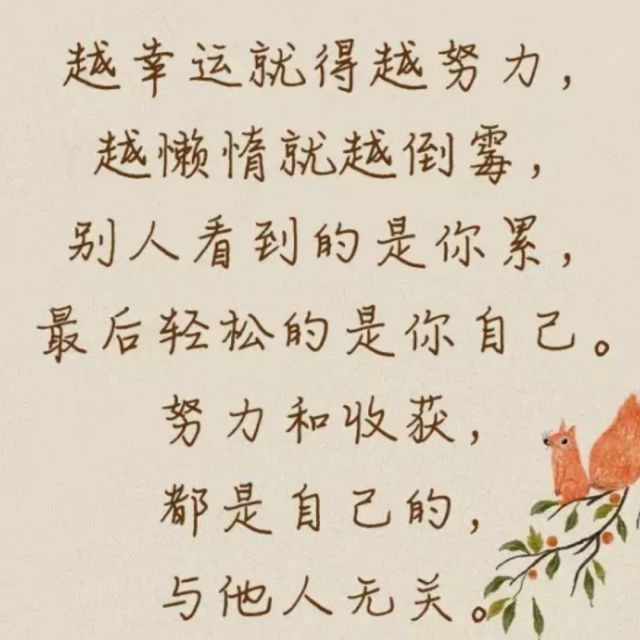 越幸运就得越努力，
越懒惰就越倒霉，
别人看到的是你累，
最后轻松的是你自己。
努力和收获，
都是自己的，
与他人无关。